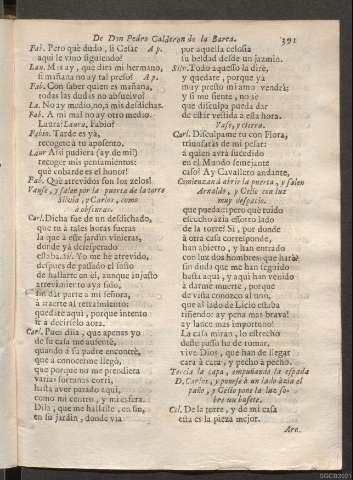 De Don Pedro Calderon de la Barca. 391
Fab. Pero què dudo, si Cesar Ap.
aqui le vino siguiendo?
Lau. Mas ay, que dirà mi hermano,
si mañana no ay tal preso? Ap.
Fab. Con saber quien es mañana,
todas las dudas no absuelvo?
La. No ay medio, no, à mis desdichas.
Fab. A mi mal no ay otro medio.
Laura! Laura. Fabio?
Fabio. Tarde es yà,
recogete à tu aposento.
Laur. Assi pudiera (ay de mi!)
recoger mis pensamientos:
què cobarde es el honor!
Fab. Què atrevidos son los zelos!
Vanse, y salen por la puerta de la torre
Silvia, y Carlos, como
à obscuras.
Carl. Dicha fue de un desdichado,
que tu à tales horas fueras
la que à este jardin vinieras,
donde yà desesperado
estaba. Sil. Yo me he atrevido,
despues de passado el susto
de hallarte en èl, aunque injusto
atrevimiento aya sido,
sin dàr parte à mi señora,
à traerte al retraimiento:
quedate aqui, porque intento
ir à decirselo aora.
Carl. Pues dila, que apenas yo
de su casa me ausentè,
quando à su padre encontrè,
que à conocerme llegò,
que porque no me prendiera
varias fortunas corrì,
hasta aver parado aqui,
como mi centro, y mi esfera.
Dila, que me hallaste, en fin,
en su jardin, donde via
por aquella celosia
su beldad desde un jazmin.
Silv. Todo aquesso la dirè,
y quedate, porque yà
muy presto mi amo vendrà;
y si me siente, no sè
que disculpa pueda dàr
de estàr vestida à esta hora.
Vase, y cierra.
Carl. Disculpame tu con Flora,
triunfaràs de mi pesar:
à quien avrà sucedido
en el Mundo semejante
caso? Ay Cavallero andante,
Comienzan à abrir la puerta, y salen
Arnaldo, y Celio con luz
muy despacio.
que pueda::: pero què ruido
escucho àzia essotro lado
de la torre? Si, por donde
à otra casa corresponde,
han abierto, y han entrado
con luz dos hombres: que harè?
sin duda que me han seguido
hasta aqui, y aqui han venido
à darme muerte, porque
de vista conozco al uno,
que al lado de Licio estaba
riñendo: ay pena mas brava!
ay lance mas importuno!
La casa miran, lo estrecho
deste passo ha de tomar,
vive Dios, que han de llegar
cara à cara, y pecho à pecho.
Tercia la capa, empuñando la espada
D. Carlos, y ponese à un lado àzia el
paño, y Celio pone la luz so-
bre un bufete.
Cel. De la torre, y de mi casa
esta es la pieza mejor.
Arn.